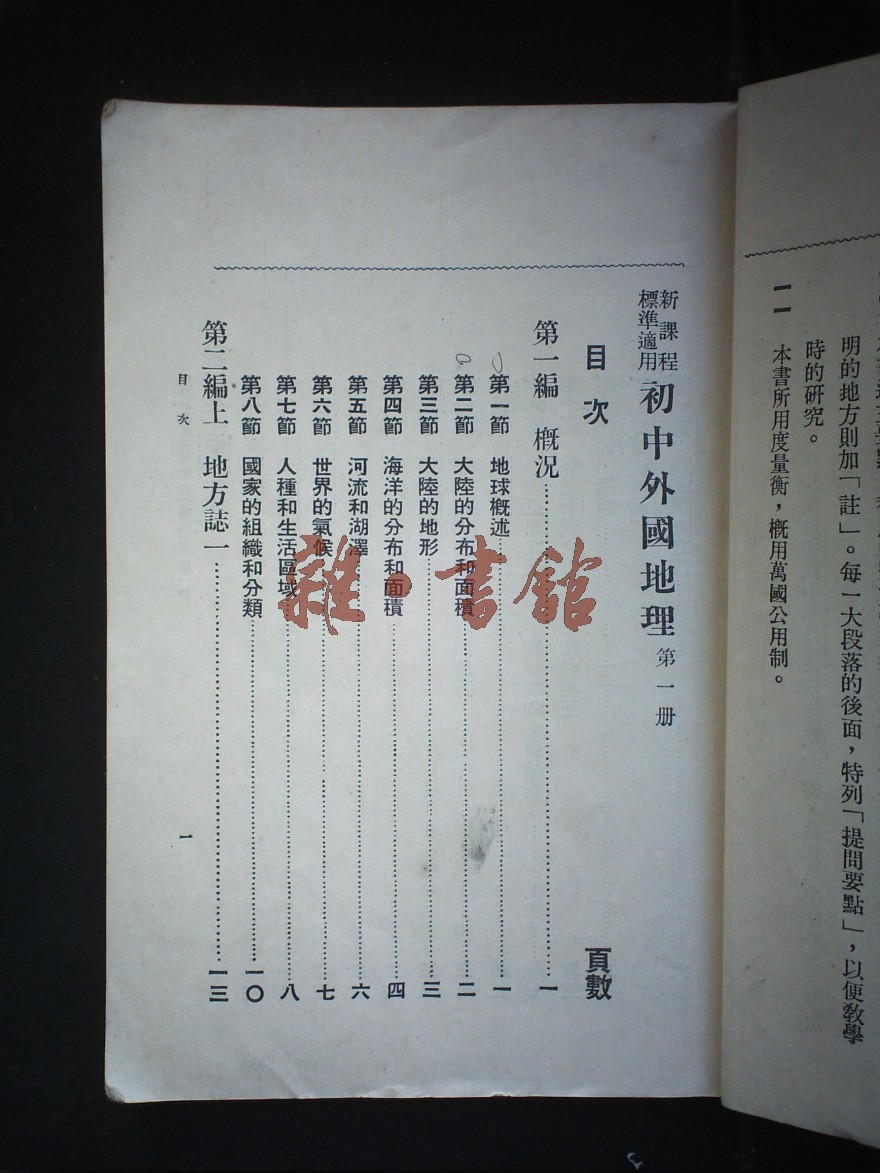 明的地方則加「註」。每一大段落的後面，特列「提問要點」，以便教學
時的研究。
一一　本書所用度量衡，概用萬國公用制。
新課程
標準適用
初中外國地理 第一册
目次　頁數
第一編　概況……一
第一節　地球概述……一
第二節　大陸的分布和面積……二
第三節　大陸的地形……三
第四節　海洋的分布和面積……四
第五節　河流和湖澤……六
第六節　世界的氣候……七
第七節　人種和生活區域……八
第八節　國家的組織和分類……一〇
第二編上　地方誌一……一三
目次
一
雜·書館